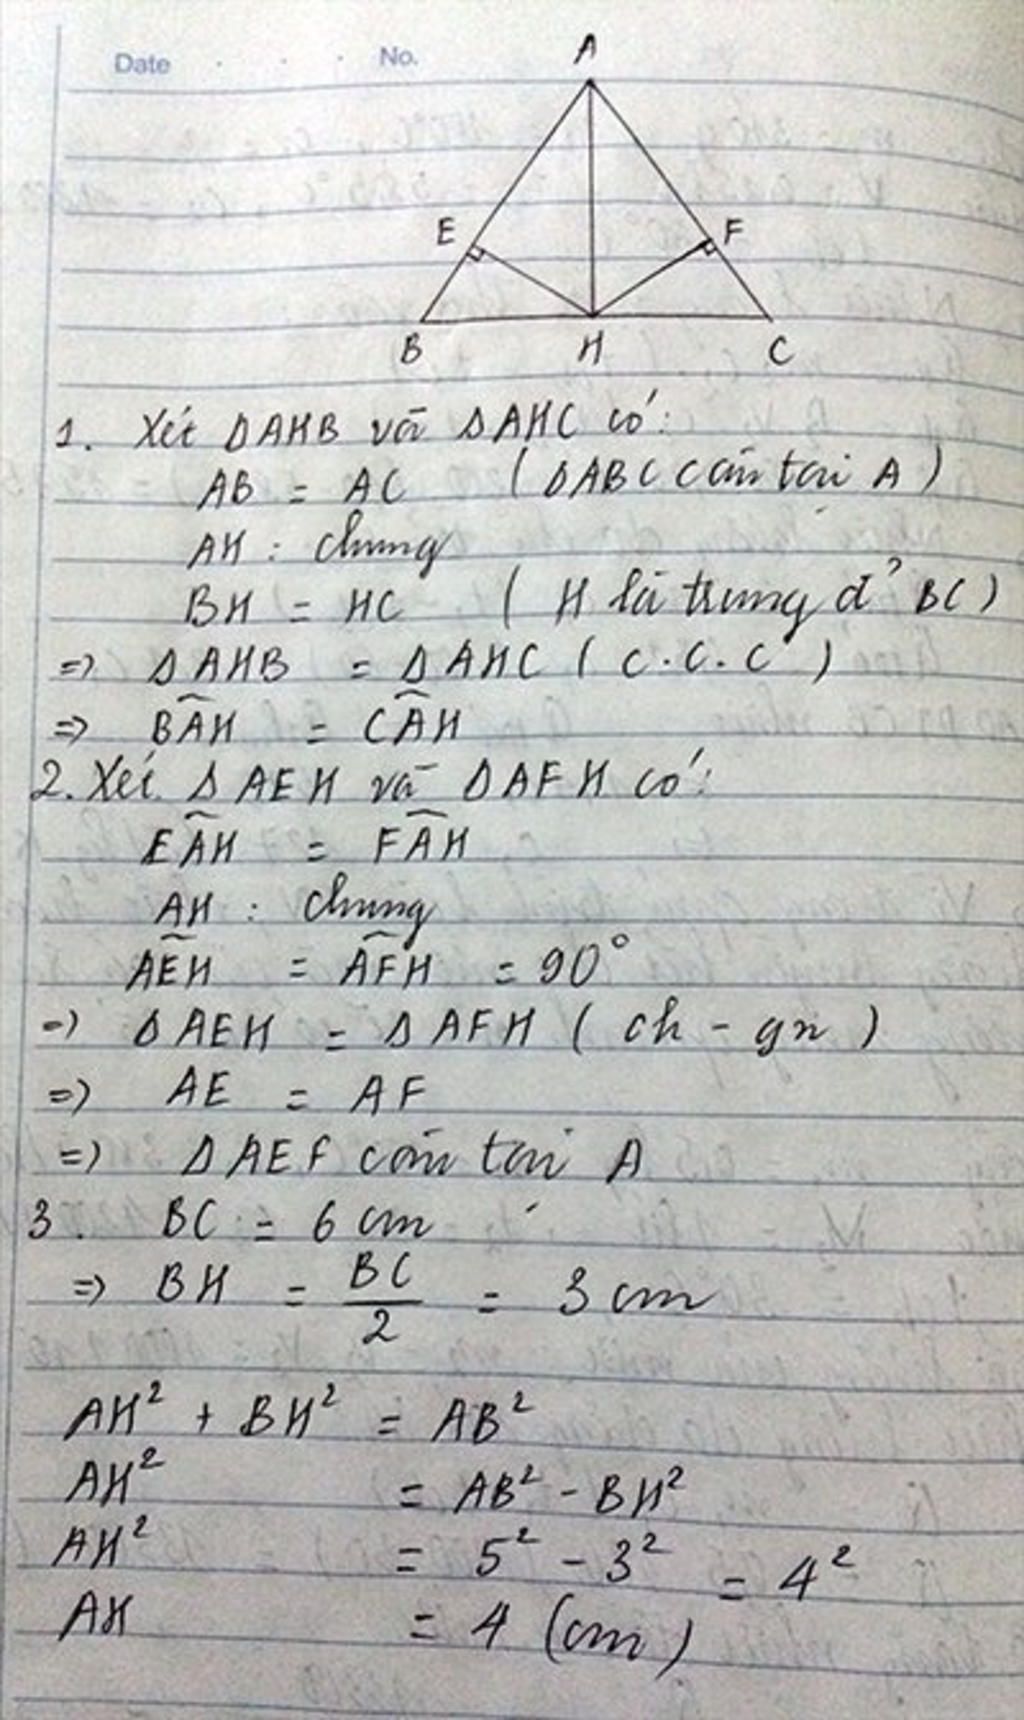 Date No.
A
E F
B H C
1. Xét ΔAHB và ΔAHC có:
AB = AC (ΔABC cân tại A)
AH : chung
BH = HC ( H là trung đ' BC)
=> ΔAHB = ΔAHC ( C.C.C )
=> BÂH = CÂH
2. Xét ΔAEH và ΔAFH có:
EÂH = FÂH
AH : chung
AÊH = AF̂H = 90°
=> ΔAEH = ΔAFH ( ch - gn )
=> AE = AF
=> ΔAEF cân tại A
3. BC = 6 cm
=> BH = BC/2 = 3 cm
AH² + BH² = AB²
AH² = AB² - BH²
AH² = 5² - 3² = 4²
AH = 4 (cm)